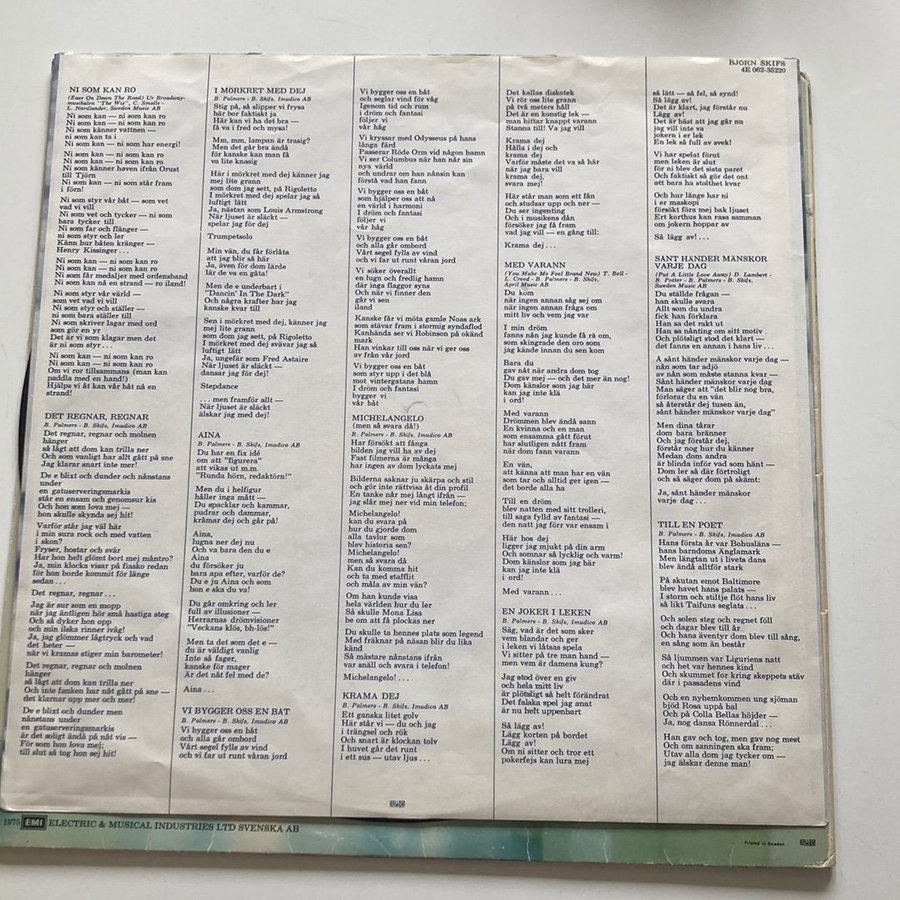 BJÖRN SKIFS
4E 062-35220
NI SOM KAN RO
(Ease On Down The Road) Ur Broadway-
musikalen "The Wiz", C. Smalls -
L. Nordlander, Sweden Music AB
Ni som kan — ni som kan ro
Ni som kan — ni som kan ro
Ni som känner vattnen —
ni som kan ta i
Ni som kan — ni som har energi!
Ni som kan — ni som kan ro
Ni som kan — ni som kan ro
Ni som känner haven ifrån Orust
till Tjörn
Ni som kan — ni som står fram
i förn!
Ni som styr vår båt — som vet
vad vi vill
Ni som vet och tycker — ni som
bara tycker till
Ni som far och flänger —
ni som styr och ler
Känn hur båten kränger —
Henry Kissinger...
Ni som kan — ni som kan ro
Ni som kan — ni som kan ro
Ni som får medaljer med ordensband
Ni som kan nå en strand — ro iland!
Ni som styr vår värld —
som vet vad vi vill
Ni som styr och ställer —
ni som bara ställer till
Ni som skriver lagar med ord
som gör en yr
Det är vi som klagar men det
är ni som styr...
Ni som kan — ni som kan ro
Ni som kan — ni som kan ro
Om vi ror tillsammans (man kan
paddla med en hand!)
Hjälps vi åt kan vår båt nå en
strand!
DET REGNAR, REGNAR
B. Palmers - B. Skifs, Imudico AB
Det regnar, regnar och molnen
hänger
så lågt att dom kan trilla ner
Och som vanligt har allt gått på sne
Jag klarar snart inte mer!
De e blixt och dunder och nånstans
under
en gatuserveringsmarkis
står en ensam och genomsur kis
Och hon som lova mej —
hon skulle skynda sej hit!
Varför står jag väl här
i min sura rock med vatten
i skon?
Fryser, hostar och svär
Har hon helt glömt bort mej måntro?
Ja, min klocka visar på fiasko redan
för hon borde kommit för länge
sedan...
Det regnar, regnar...
Jag är sur som en mopp
när jag äntligen hör små hastiga steg
Och så dyker hon opp
och min ilska rinner iväg!
Ja, jag glömmer lågtryck och vad
det heter —
när vi kramas stiger min barometer!
Det regnar, regnar och molnen
hänger
så lågt att dom kan trilla ner
Och inte fanken har nåt gått på sne —
det klarnar upp mer och mer!
De e blixt och dunder men
nånstans under
en gatuserveringsmarkis
är det soligt ändå på nåt vis —
För som hon lova mej;
till slut så tog hon sej hit!
I MÖRKRET MED DEJ
B. Palmers - B. Skifs, Imudico AB
Stig på, så slipper vi frysa
här bor faktiskt ja
Här kan vi ha det bra —
få va i fred och mysa!
Mm, mm, lampan är trasig?
Men det går bra ändå
för kanske kan man få
va lite knasig
Här i mörkret med dej känner jag
mej lite grann
som dom jag sett, på Rigoletto
I mörkret med dej spelar jag så
luftigt lätt
Ja, nästan som Louis Armstrong
När ljuset är släckt —
spelar jag för dej
Trumpetsolo
Min vän, du får förlåta
att jag blir så här
Ja, även för dom lärde
lär de va en gåta!
Men de e underbart i
"Dancin' In The Dark"
Och några krafter har jag
kanske kvar till
Sen i mörkret med dej, känner jag
mej lite grann
som dom jag sett, på Rigoletto
I mörkret med dej svävar jag så
luftigt lätt
Ja, ungefär som Fred Astaire
När ljuset är släckt —
dansar jag för dej!
Stepdance
...men framför allt —
När ljuset är släckt
älskar jag med dej!
AINA
B. Palmers - B. Skifs, Imudico AB
Du har en fix idé
om att "figurera"
att vikas ut m.m.
"Runda hörn, redaktörn!"
Men du i helfigur
håller inga mått —
Du spacklar och kammar,
pudrar och dammar,
krämar dej och går på!
Aina,
lugna ner dej nu
Och va bara den du e
Aina
du försöker ju
bara apa efter, varför de?
Du e ju Aina och som
hon e ska du va!
Du går omkring och ler
full av illusioner —
Herrarnas drömvisioner
"Veckans klös, bh-lös!"
Men ta det som det e —
du är väldigt vanlig
Inte så fager,
kanske för mager
Är det nåt fel med de?
Aina...
VI BYGGER OSS EN BÅT
B. Palmers - B. Skifs, Imudico AB
Vi bygger oss en båt
och alla går ombord
Vårt segel fylls av vind
och vi far ut runt våran jord
Vi bygger oss en båt
och seglar vind för våg
Igenom tid och rum
i dröm och fantasi
följer vi
vår håg
Vi kryssar med Odysseus på hans
långa färd
Passerar Röde Orm vid någon hamn
Vi ser Columbus när han når sin
nya värld
och undrar om han nånsin kan
förstå vad han fann
Vi bygger oss en båt
som hjälper oss att nå
en värld i harmoni
I dröm och fantasi
följer vi
vår håg
Vi bygger oss en båt
och alla går ombord
Vårt segel fylls av vind
och vi far ut runt våran jord
Vi söker överallt
en lugn och fredlig hamn
där inga flaggor syns
Och när vi finner den
går vi sen
iland
Kanske får vi möta gamle Noas ark
som stävar fram i stormig syndaflod
Kanhända ser vi Robinson på okänd
mark
Han vinkar till oss när vi ger oss
av från vår jord
Vi bygger oss en båt
som styr upp i det blå
mot vintergatans hamn
I dröm och fantasi
bygger vi
vår båt
MICHELANGELO
(men så svara då!)
B. Palmers - B. Skifs, Imudico AB
Har försökt att fånga
bilden jag vill ha av dej
Fast filmerna är många
har ingen av dom lyckats mej
Bilderna saknar ju skärpa och stil
och gör inte rättvisa åt din profil
En tanke når mej långt ifrån —
jag slår mej ner vid min telefon;
Michelangelo!
kan du svara på
hur du gjorde dom
alla tavlor som
blev historia sen?
Michelangelo!
men så svara då
Kan du komma hit
och ta med stafflit
och måla av min vän?
Om han kunde visa
hela världen hur du ler
Så skulle Mona Lisa
be om att få plockas ner
Du skulle ta hennes plats som legend
Med fräknar på näsan blir du lika
känd
Så mästare nånstans ifrån
var snäll och svara i telefon!
Michelangelo!...
KRAMA DEJ
B. Palmers - B. Skifs, Imudico AB
Ett ganska litet golv
Här står vi — du och jag
i trängsel och rök
Och snart är klockan tolv
I huvet går det runt
i ett sus — utav ljus...
Det kallas diskotek
Vi rör oss lite grann
på två meters håll
Det är en konstig lek —
man hittar knappt varann
Stanna till! Va jag vill
Krama dej
Hålla i dej och
krama dej
Varför måste det va så här
när jag bara vill
krama dej,
svara mej!
Här står man som ett fån
och studsar upp och ner —
Du ser ingenting
Och i musikens dån
försöker jag få fram
vad jag vill — en gång till:
Krama dej...
MED VARANN
(You Make Me Feel Brand New) T. Bell -
L. Creed - B. Palmers - B. Skifs,
April Music AB
Du kom
när ingen annan såg sej om
när ingen annan fråga om
mitt liv och vem jag var
I min dröm
fanns nån jag kunde få rå om,
som skingrade den oro som
jag kände innan du sen kom
Bara du
gav nåt när andra dom tog
Du gav mej — och det mer än nog!
Dom känslor som jag bär
kan jag inte klä
i ord!
Med varann
Drömmen blev ändå sann
En kvinna och en man
som ensamma gått förut
har slutligen nått fram
när dom fann varann
En vän,
att känna att man har en vän
som tar och alltid ger igen —
det borde alla ha
Till en dröm
blev natten med sitt trolleri,
till saga fylld av fantasi —
den natt jag förr var ensam i
Här hos dej
ligger jag mjukt på din arm
Och somnar så lycklig och varm!
Dom känslor som jag bär
kan jag inte klä
i ord!
Med varann...
EN JOKER I LEKEN
B. Palmers - B. Skifs, Imudico AB
Säg, vad är det som sker
vem blandar och ger
i leken vi låtsas spela
Vi sitter på tre man hand —
men vem är damens kung?
Jag stod över en giv
och hela mitt liv
är plötsligt så helt förändrat
Det falska spel jag anat
är nu helt uppenbart
Så lägg av!
Lägg korten på bordet
Lägg av!
Om ni sitter och tror ett
pokerfejs kan lura mej
så lätt — så fel, så synd!
Så lägg av!
Det är klart, jag förstår nu
Lägg av!
Det är bäst att jag går nu
jag vill inte va
jokern i er lek
En lek så full av svek!
Vi har spelat förut
men leken är slut
för ni blev det sista paret
Och faktiskt så gör det ont
att bara ha stolthet kvar
Och hur länge har ni
i er maskopi
försökt föra mej bak ljuset
Ert korthus kan rasa samman
om jokern hoppar av
Så lägg av!...
SÅNT HÄNDER MÄNSKOR
VARJE DAG
(Put A Little Love Away) D. Lambert -
B. Potter - B. Palmers - B. Skifs,
Sweden Music AB
Du ställde frågan —
han skulle svara
Allt som du undra
fick han förklara
Han sa det rakt ut
Han sa nånting om sitt motiv
Och plötsligt stod det klart —
det fanns en annan i hans liv...
Å sånt händer mänskor varje dag —
nån som tar adjö
av nån som måste stanna kvar —
Sånt händer mänskor varje dag
Man säger att "det blir nog bra,
förlorar du en vän
så återstår dej tusen än,
sånt händer mänskor varje dag"
Men dina tårar
dom bara bränner
Och jag förstår dej,
förstår nog hur du känner
Medan dom andra
är blinda inför vad som hänt —
Dom ler så där förtroligt
och så säger dom på skämt:
Ja, sånt händer mänskor
varje dag...
TILL EN POET
B. Palmers - B. Skifs, Imudico AB
Hans första år var Bohusläns —
hans barndoms Änglamark
Men längtan ut i livets dans
blev ändå alltför stark
På skutan emot Baltimore
blev havet hans palats —
I storm och stiltje flöt hans liv
så likt Taifuns seglats...
Och solen steg och regnet föll
och dagar blev till år
Och hans äventyr dom blev till sång,
en sång som än består
Så ljummen var Liguriens natt
och het var hennes kind
Och skummet for kring skeppets stäv
där i passadens vind
Och en nyhemkommen ung sjöman
bjöd Rosa uppå bal
Och på Colla Bellas höjder —
Ja, nog dansa Rönnerdal...
Han gav och tog, men gav nog mest
Och om sanningen ska fram;
Utav alla dom jag tycker om —
jag älskar denne man!
1975 EMI ELECTRIC & MUSICAL INDUSTRIES LTD SVENSKA AB
Printed in Sweden